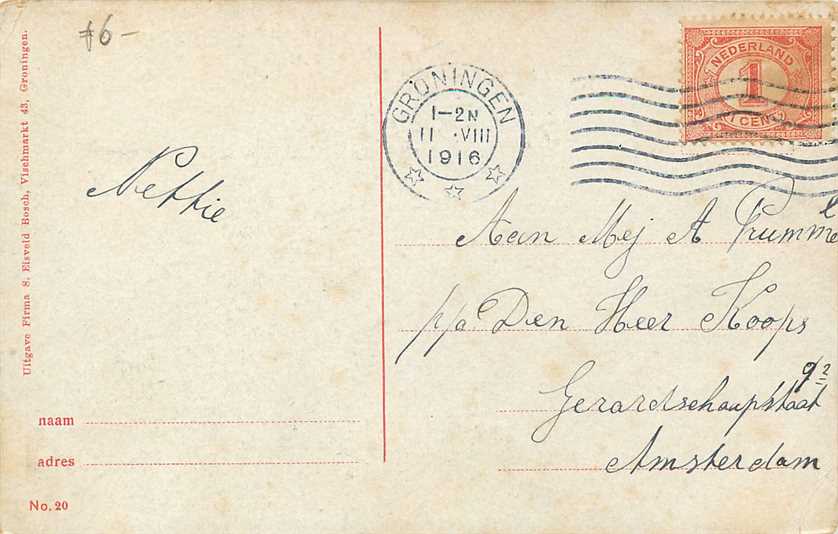 f6-
Uitgave Firma S. Eisveld Bosch, Vischmarkt 43, Groningen.
Nettie
naam
adres
No. 20
GRONINGEN
1-2N
11 .VIII
1916
NEDERLAND
1
1 CENT
Aan Mej A Prummel
p/a Den Heer Koops
Gerardschaupstaat 9²
Amsterdam